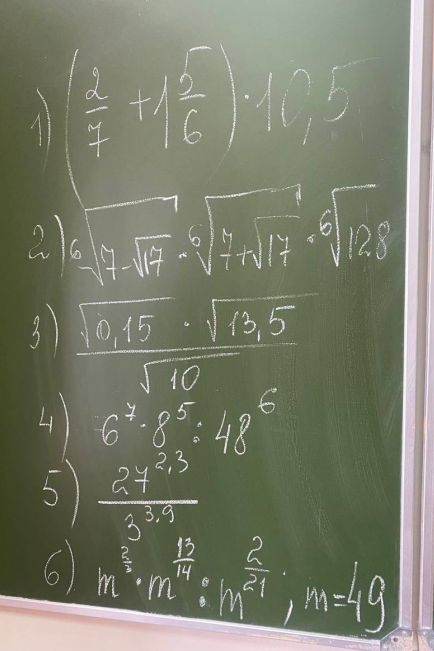 1) (2/7 + 1 5/6) · 10,5
2) ⁶√(7-√17) · ⁶√(7+√17) · ⁶√128
3) (√0,15 · √13,5) / √10
4) 6⁷ · 8⁵ : 48⁶
5) 27^2,3 / 3^3,9
6) m^(2/3) · m^(13/14) : m^(2/21) ; m=49